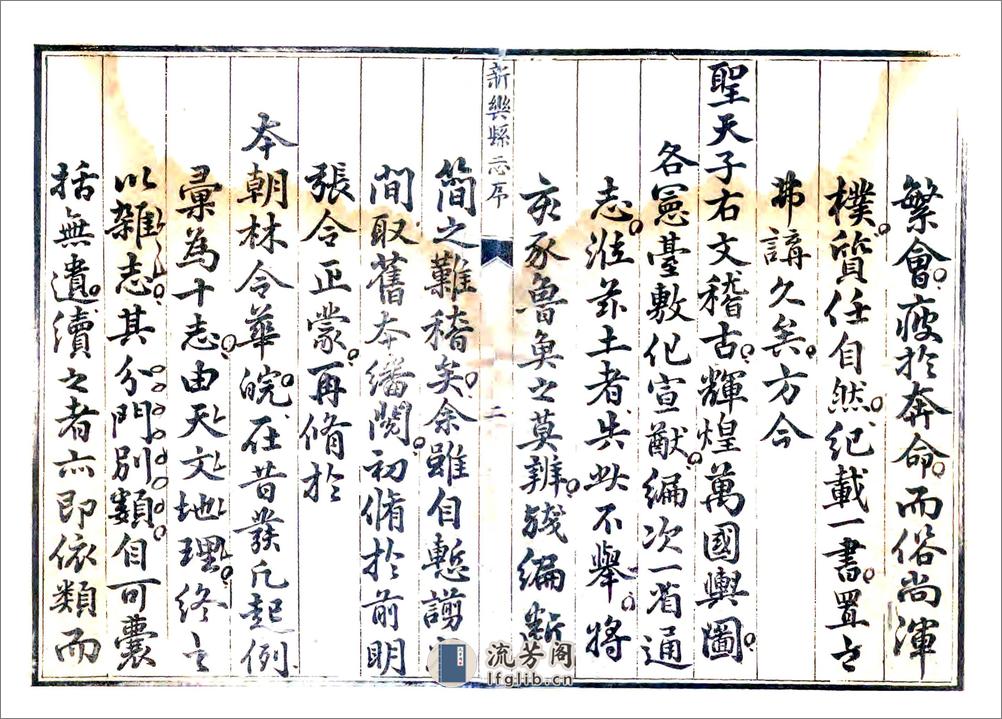 繁會疲於奔命而俗尚渾
樸質任自然紀載一書置之
弗講久矣方今
聖天子右文稽古輝煌萬國輿圖
各憲臺敷化宣猷編次一省通
志涖茲土者失此不舉將
亥豕魯魚之莫辨殘編斷
簡之難稽矣余雖自慙謭
間取舊本繙閱初脩於前明
張令正蒙再脩於
本朝林令華皖在昔發凡起例
彙為十志由天文地理終之
以雜志其分門別類自可囊
括無遺續之者亦即依類而
新樂縣志序
二
流芳阁
lfglib.cn